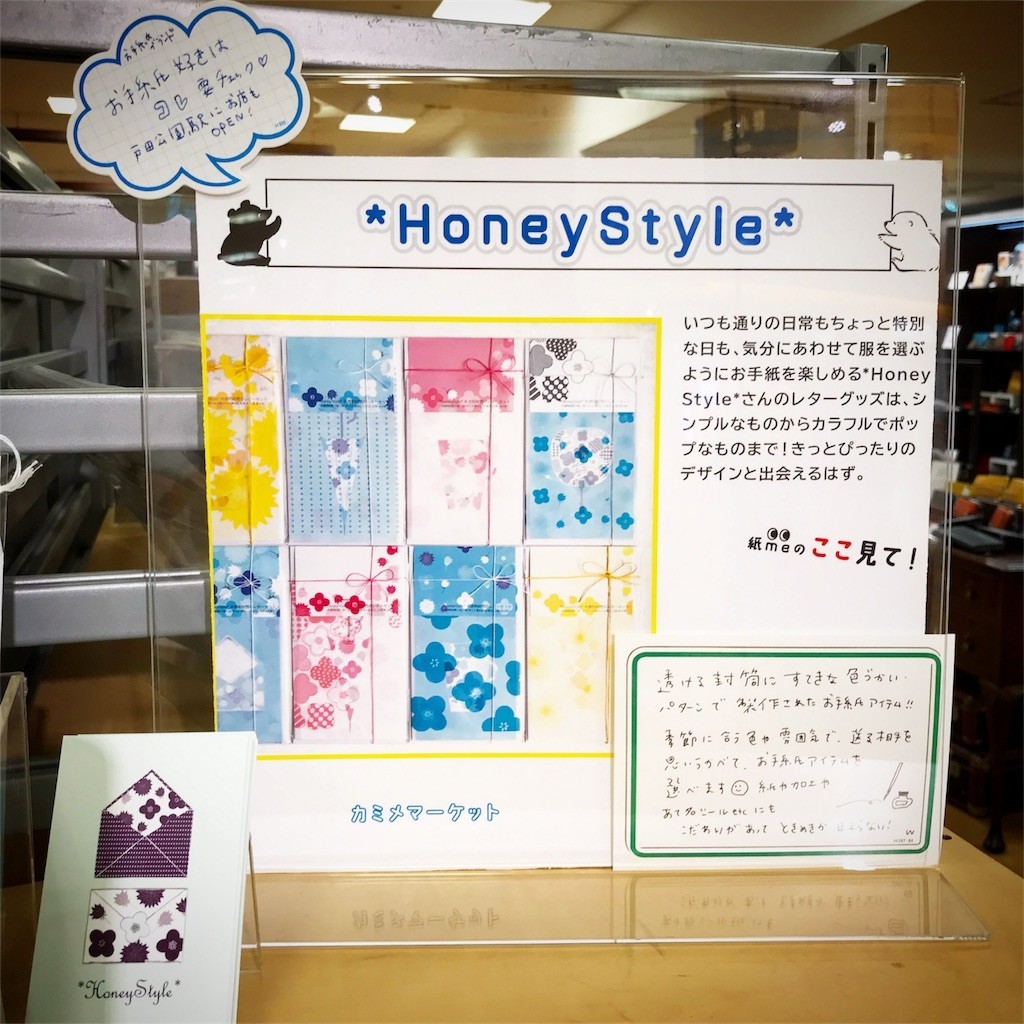 お手紙好きは
要チェック♡
戸田公園駅にお店も
OPEN!
*HoneyStyle*
いつも通りの日常もちょっと特別
な日も、気分にあわせて服を選ぶ
ようにお手紙を楽しめる*Honey
Style*さんのレターグッズは、シ
ンプルなものからカラフルでポッ
プなものまで!きっとぴったりの
デザインと出会えるはず。
紙meのここ見て!
カミメマーケット
透ける封筒にすてきな色づかい・
パターンで製作されたお手紙アイテム!!
季節に合う色や雰囲気で、送る相手を
思いうかべて、お手紙アイテムを
選べます 紙や加工や
あて名シール etc にも
こだわりがあって ときめきが止まらない!
*HoneyStyle*